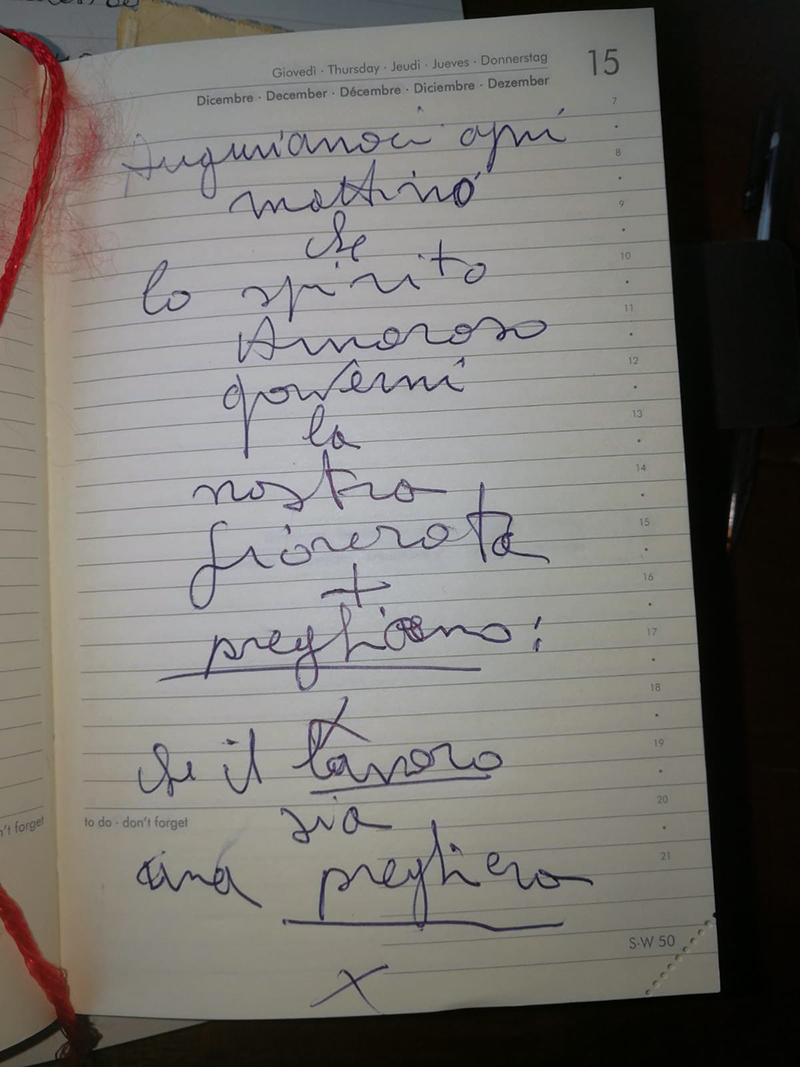 Giovedì · Thursday · Jeudi · Jueves · Donnerstag
15
Dicembre · December · Décembre · Diciembre · Dezember
7
Auguriamoci ogni
8
mattino
9
che
10
lo spirito
11
Amoroso
12
governi
13
la
14
nostra
15
giornata
16
+
17
preghiamo:
18
19
che il lavoro
20
to do · don't forget
n't forget
sia
21
una preghiera
S-W 50
x